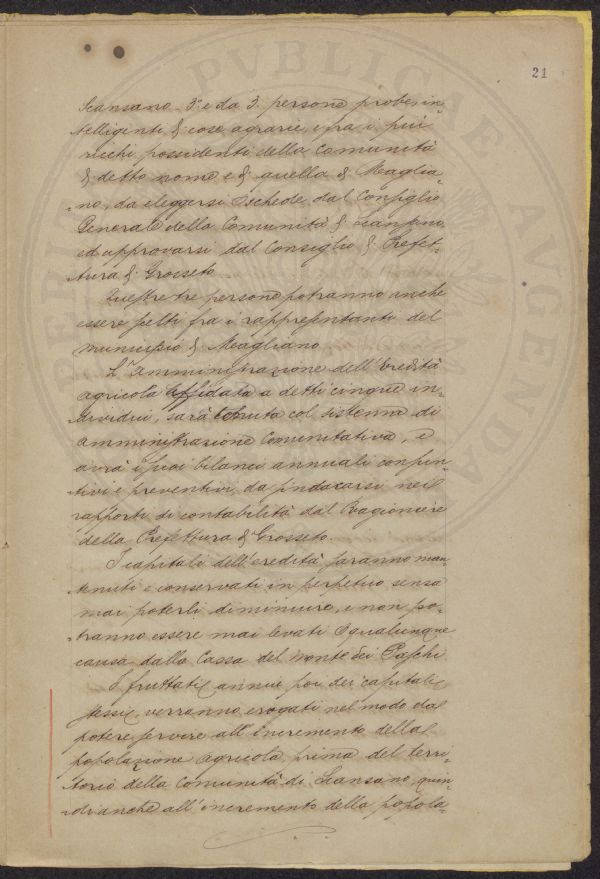 21
Scansano 3° e da 3. persone probe, in-
telligenti & cose agrarie, e fra i più
ricchi possidenti della Comunità
& detto nome e & quella & Maglia-
no, da eleggersi a schede dal Consiglio
Generale della Comunità & Scansano,
ed approvarsi dal Consiglio & Prefet-
tura & Grosseto
Queste tre persone potranno anche
essere scelti fra i rappresentanti del
municipio & Magliano
L'Amministrazione dell'Eredità
agricola affidata a detti cinque in-
dividui, sarà tenuta col sistema di
amministrazione Comunitativa, e
avrà i suoi bilanci annuali consun-
tivi e preventivi, da sindacarsi nei
rapporti di contabilità dal Ragioniere
della Prefettura & Grosseto.
I capitali dell'eredità saranno man-
tenuti e conservati in perpetuo sensa
mai poterli diminuire, e non po-
tranno essere mai levati & qualunque
causa dalla Cassa del Monte dei Paschi
I fruttati annui poi dei capitali
stessi, verranno erogati nel modo da
potere servire all'incremento della
popolazione agricola prima del terri-
torio della Comunità di Scansano, quin-
di anche all'incremento della popola-
PERICULA PUBLICAE AUGENDAE